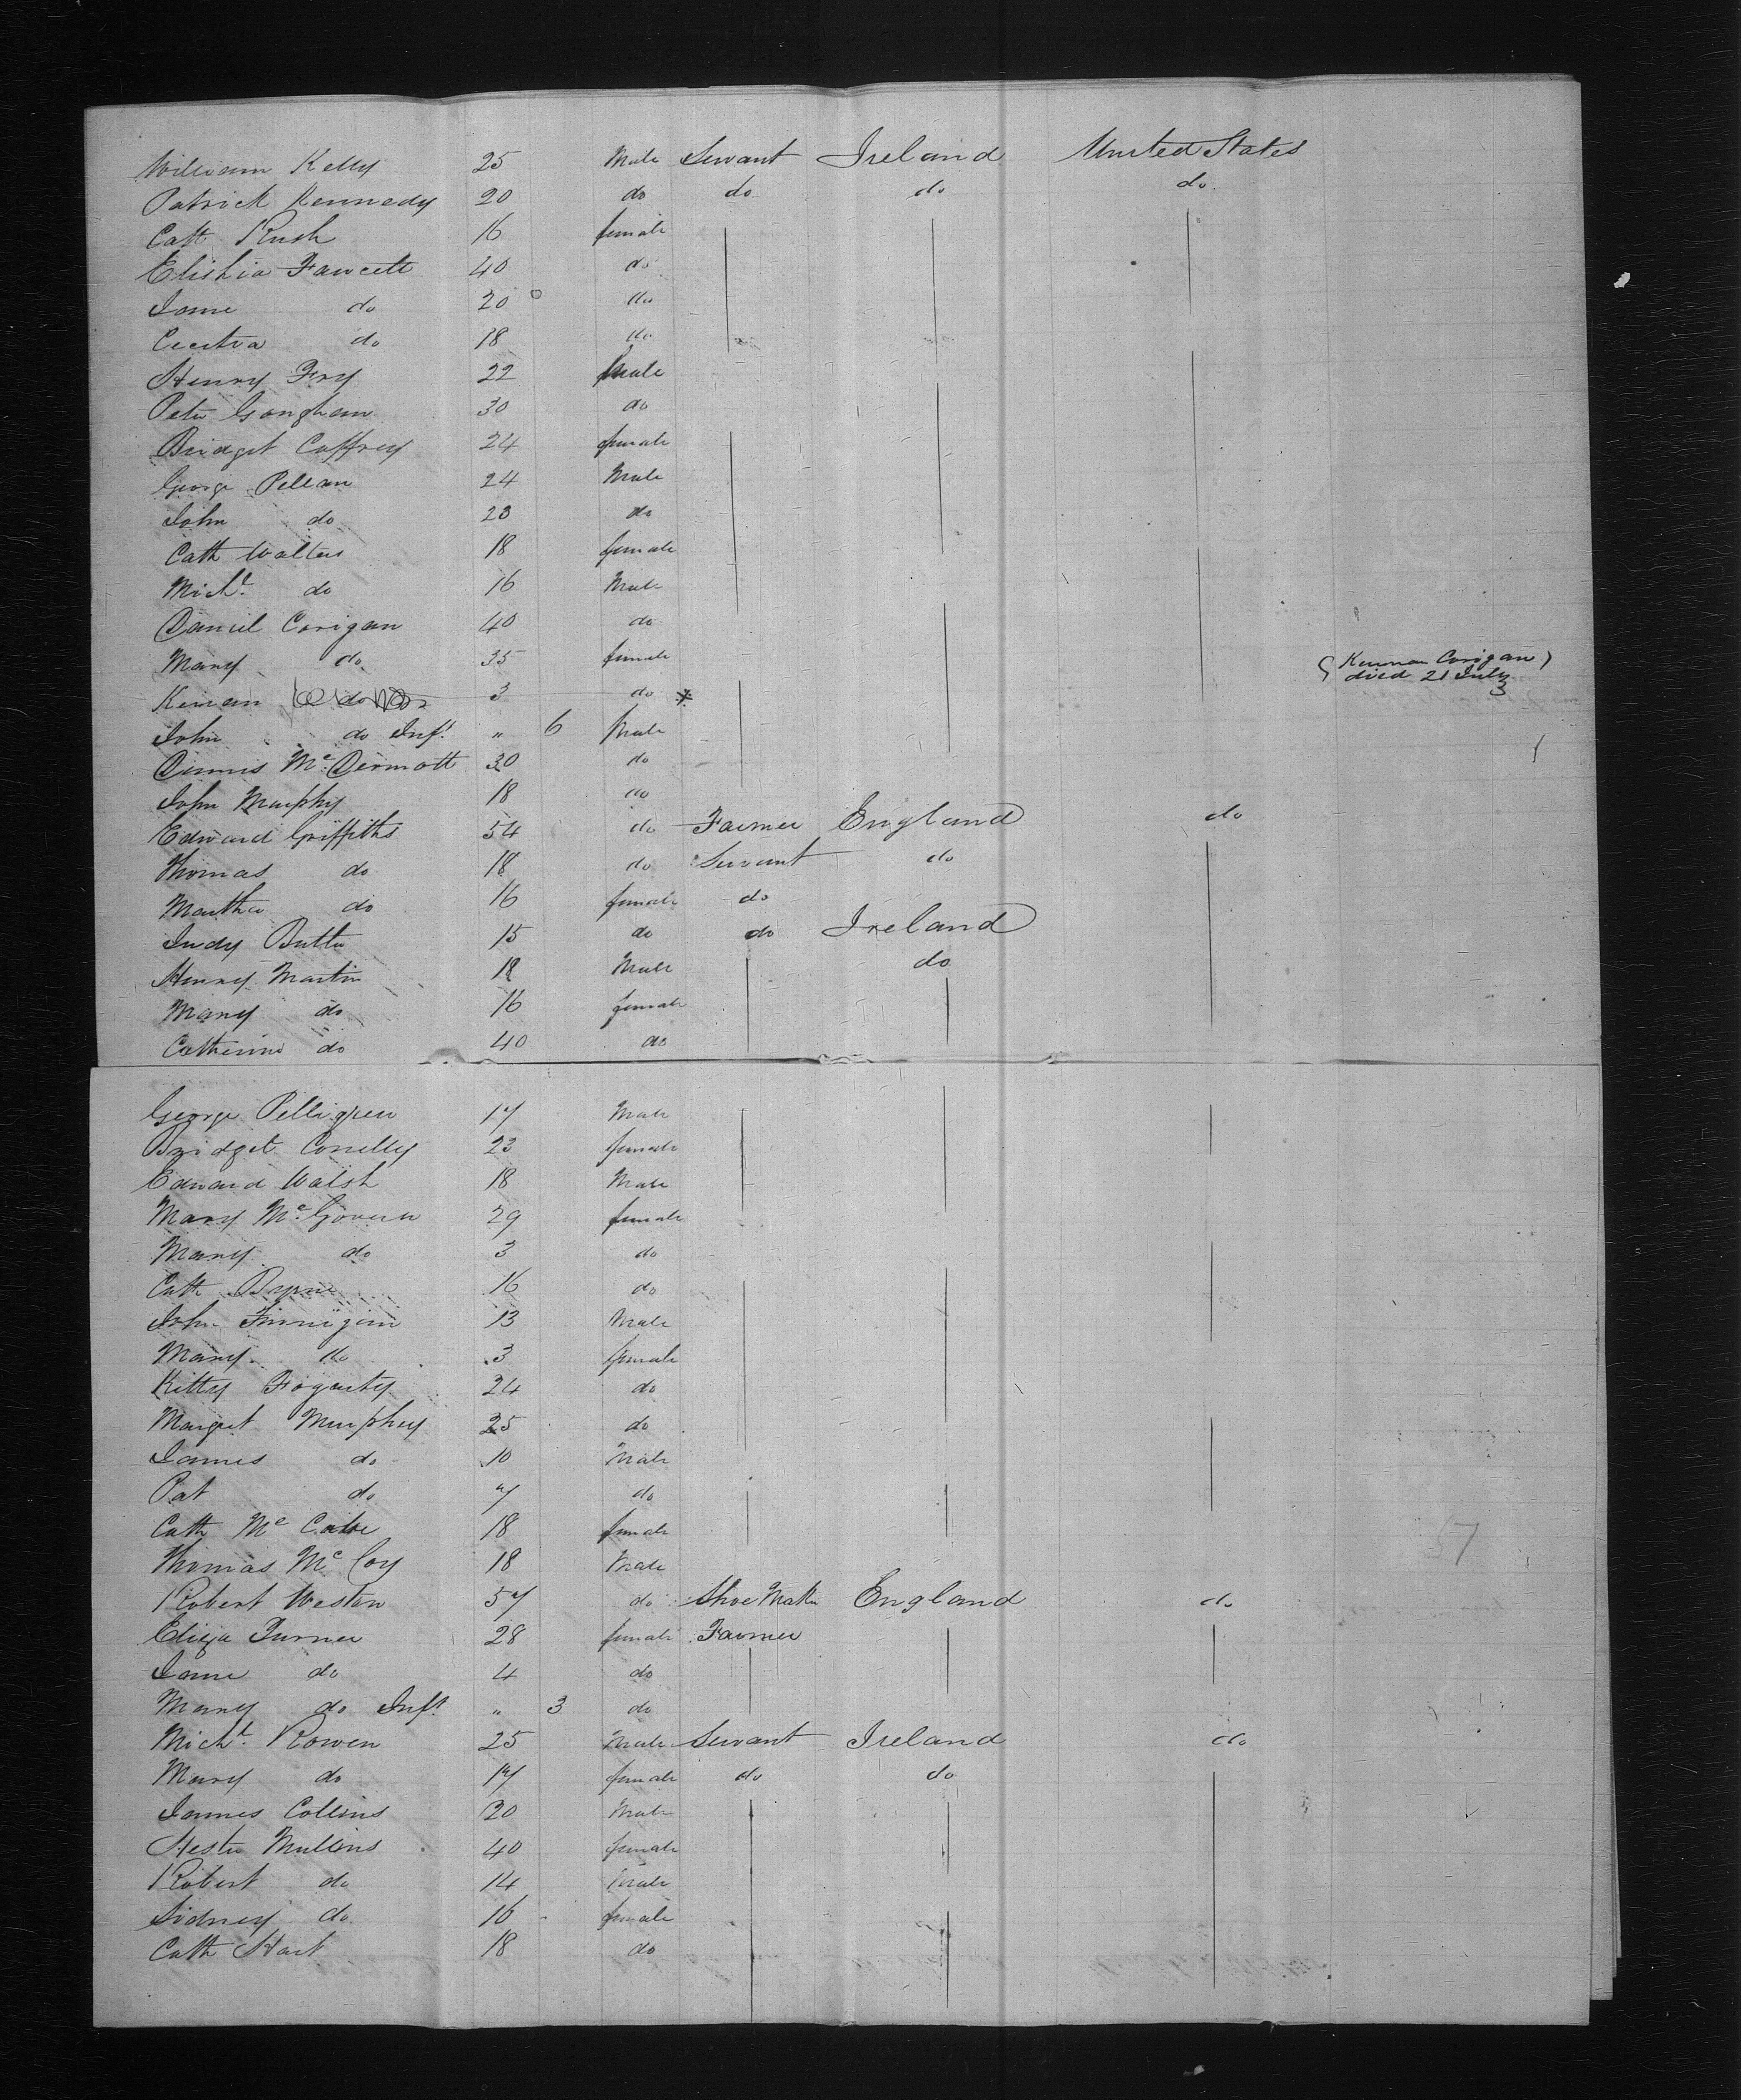 William Kelly 25 Male Servant Ireland United States
Patrick Kennedy 20 do do do do
Cath Rush 16 female
Elishia Fawcett 40 do
Jane do 20 do
Cecelia do 18 do
Henry Fry 22 Male
Peter Gonghan 30 do
Bridget Caffrey 24 female
George Pellan 24 Male
John do 23 do
Cath Walters 18 female
Michl. do 16 Male
Daniel Corigan 40 do
Mary do 35 female
Kenan do 3 do * (Keenan Corigan) died 21 July
John do Inft. " 6 Male
Dennis McDermott 30 do
John Murphy 18 do
Edward Griffiths 54 do Farmer England do
Thomas do 18 do Servant do
Martha do 16 female do
Judy Butler 15 do do Ireland
Henry Martin 18 Male do
Mary do 16 female
Catherine do 40 do
George Pelligrew 17 Male
Bridget Connelly 23 female
Edward Walsh 18 Male
Mary McGovern 29 female
Mary do 3 do
Cath Byrne 16 do
John Finnigan 13 Male
Mary do 3 female
Kitty Fogarty 24 do
Margret Murphey 25 do
James do 10 Male
Pat do 7 do
Cath McCabe 18 female
Thomas McCoy 18 Male
57
Robert Weston 57 do Shoe Maker England do
Eliza Turner 28 female Farmer
Jane do 4 do
Mary do Inft. " 3 do
Michl. Rowen 25 Male Servant Ireland do
Mary do 17 female do do
James Collins 20 Male
Hester Mullins 40 female
Robert do 14 Male
Sidney do 16 female
Cath Hart 18 do